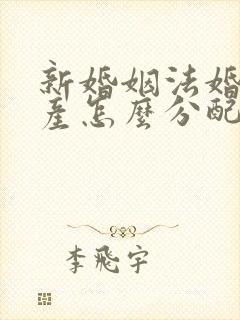 新婚姻法婚
産怎麼分配
李飛宇